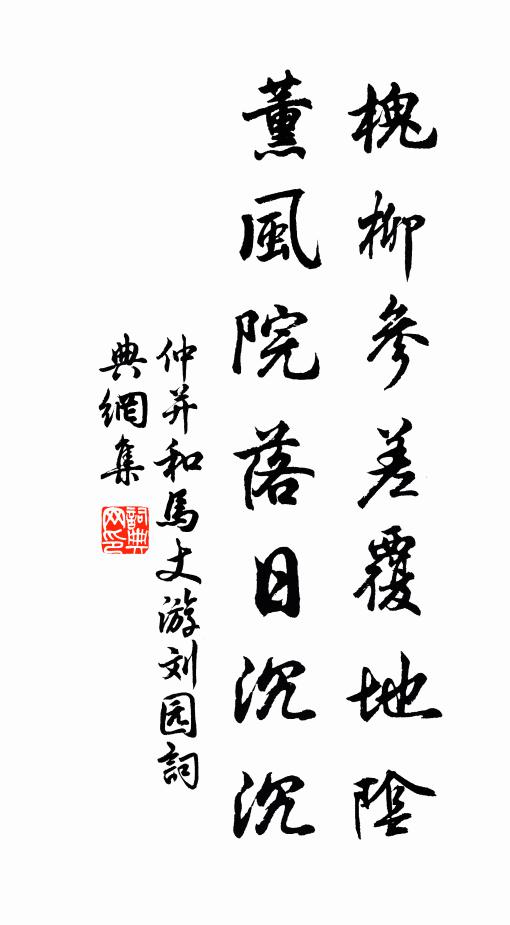 槐柳參差覆地陰
薰風院落日沉沉
仲并和馬丈游刘园詞
典網集
詞典网印